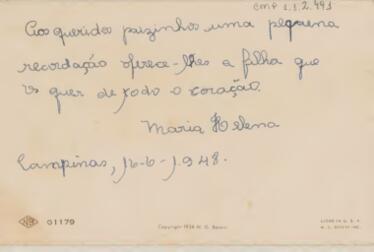 CMP 2.1.2.493
Aos queridos paizinhos uma pequena
recordação oferece-lhes a filha que
vs quer de todo o coração.
Maria Helena
Campinas, 16-6-1948.
NB 01179
Copyright 1936 N. G. Basevi
LITHO IN U. S. A.